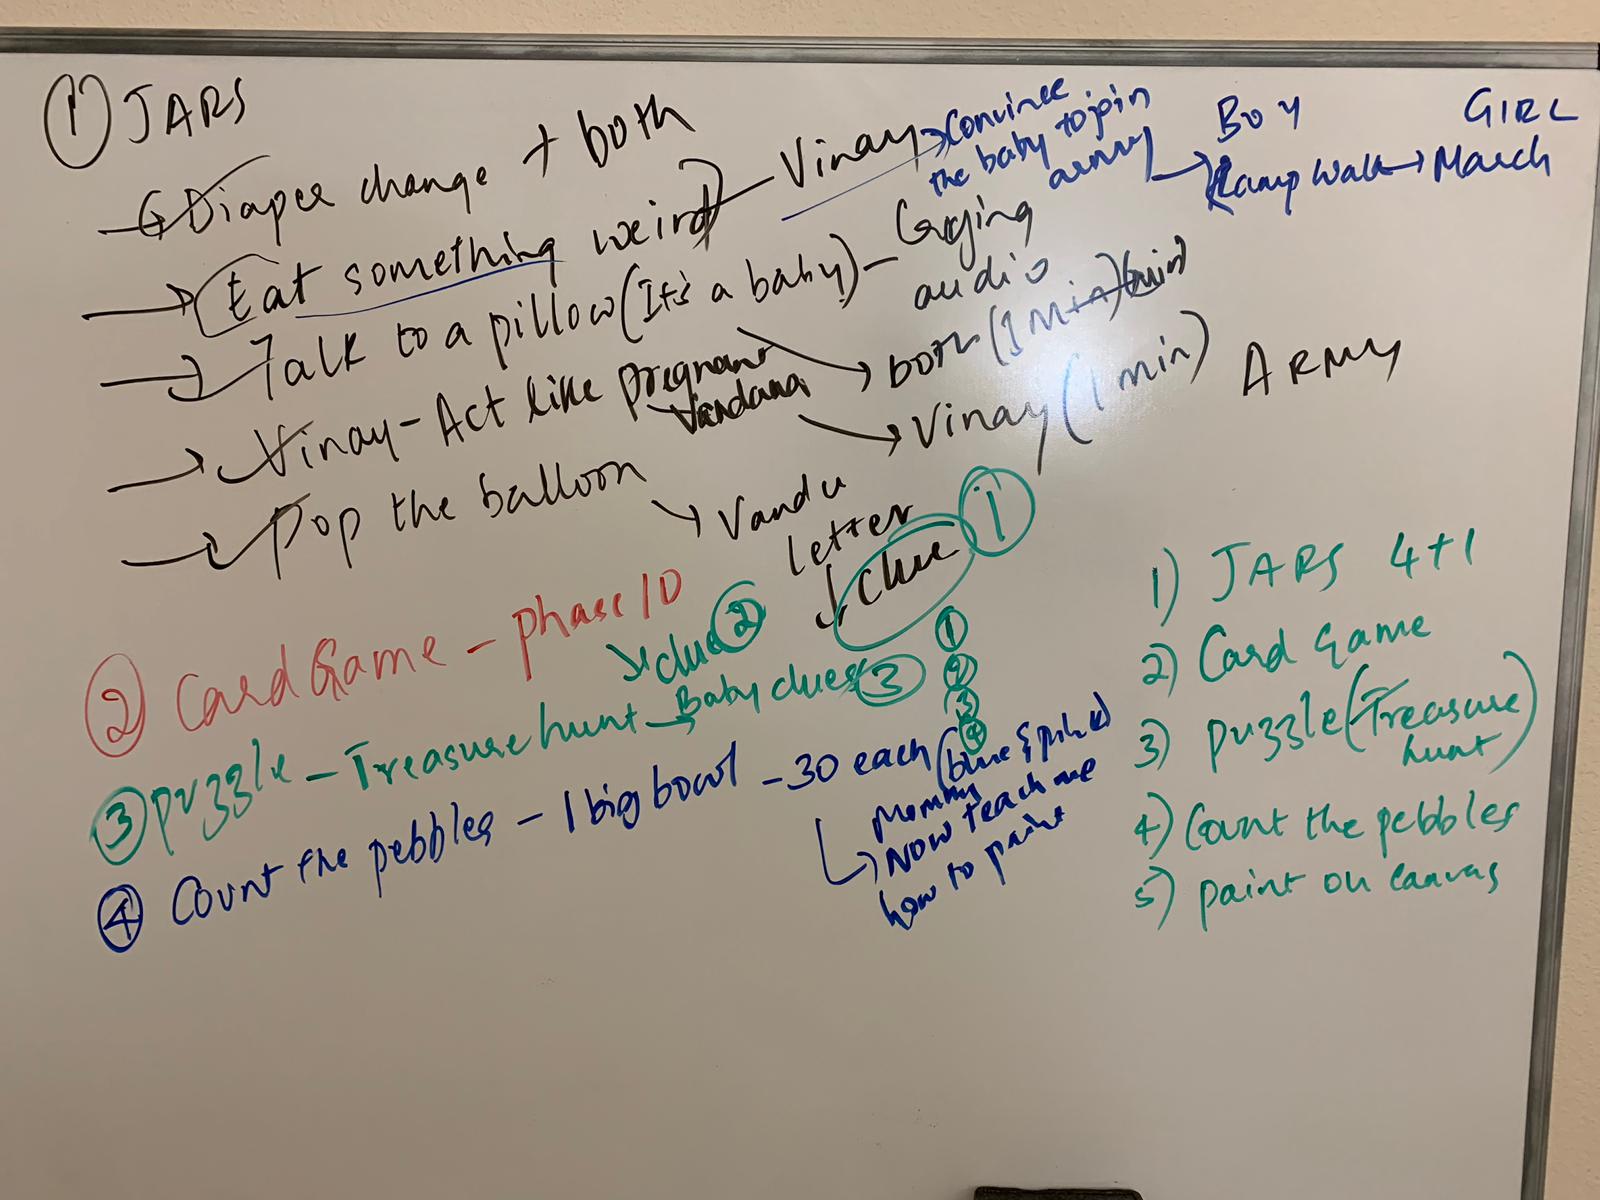 1 JARS
→ Diaper change + both
→ Eat something weird - Vinay → Convince
the baby to join
army → Ramp Walk → March
Boy
GIRL
→ Talk to a pillow (It's a baby) - Crying
audio
→ both (1 min)
→ Vinay - Act like pregnant
Vandana
→ Vinay (1 min)
ARMY
→ Pop the balloon
→ Vandu
letter
↓ Clue 1
2 Card Game - phase 10
→ clue 2
3 puzzle - Treasure hunt → Baby clues 3
1
2
3
4
4 Count the pebbles - 1 big bowl - 30 each (blue & pink)
Mommy
→ Now teach me
how to paint
1) JARS 4+1
2) Card Game
3) puzzle (Treasure
hunt)
4) Count the pebbles
5) paint on canvas